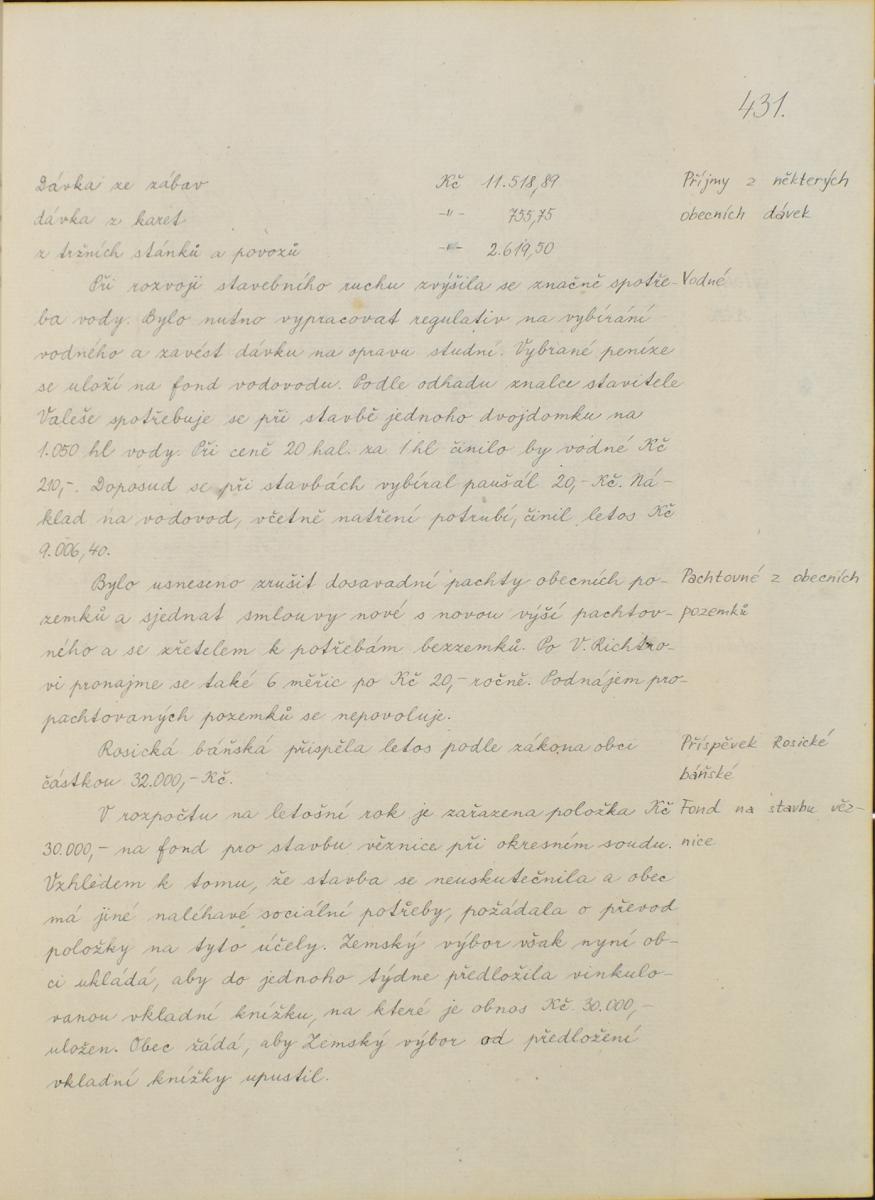 431.
Dávka ze zábav Kč 11.518,89 Příjmy z některých
dávka z karet -"- 755,75 obecních dávek
z tržních stánků a povozů -"- 2.619,50
Při rozvoji stavebního ruchu zvýšila se značně spotře- Vodné
ba vody. Bylo nutno vypracovat regulativ na vybírání
vodného a zavést dávku na opravu studní. Vybrané peníze
se uloží na fond vodovodu. Podle odhadu znalce stavitele
Valeše spotřebuje se při stavbě jednoho dvojdomku na
1.050 hl vody. Při ceně 20 hal. za 1 hl činilo by vodné Kč
210,-. Doposud se při stavbách vybíral paušál 20,- Kč. Ná-
klad na vodovod, včetně natření potrubí, činil letos Kč
9.006,40.
Bylo usneseno zrušit dosavadní pachty obecních po- Pachtovné z obecních
zemků a sjednat smlouvy nové s novou výší pachtov- pozemků
ného a se zřetelem k potřebám bezzemků. Po V. Richtro-
vi pronajme se také 6 měřic po Kč 20,- ročně. Podnájem pro-
pachtovaných pozemků se nepovoluje.
Rosická báňská přispěla letos podle zákona obci Příspěvek Rosické
částkou 32.000,- Kč. báňské
V rozpočtu na letošní rok je zařazena položka Kč Fond na stavbu věz-
30.000,- na fond pro stavbu věznice při okresním soudu. nice
Vzhledem k tomu, že stavba se neuskutečnila a obec
má jiné naléhavé sociální potřeby, požádala o převod
položky na tyto účely. Zemský výbor však nyní ob-
ci ukládá, aby do jednoho týdne předložila vinkulo-
vanou vkladní knížku, na které je obnos Kč 30.000,-
uložen. Obec žádá, aby Zemský výbor od předložení
vkladní knížky upustil.